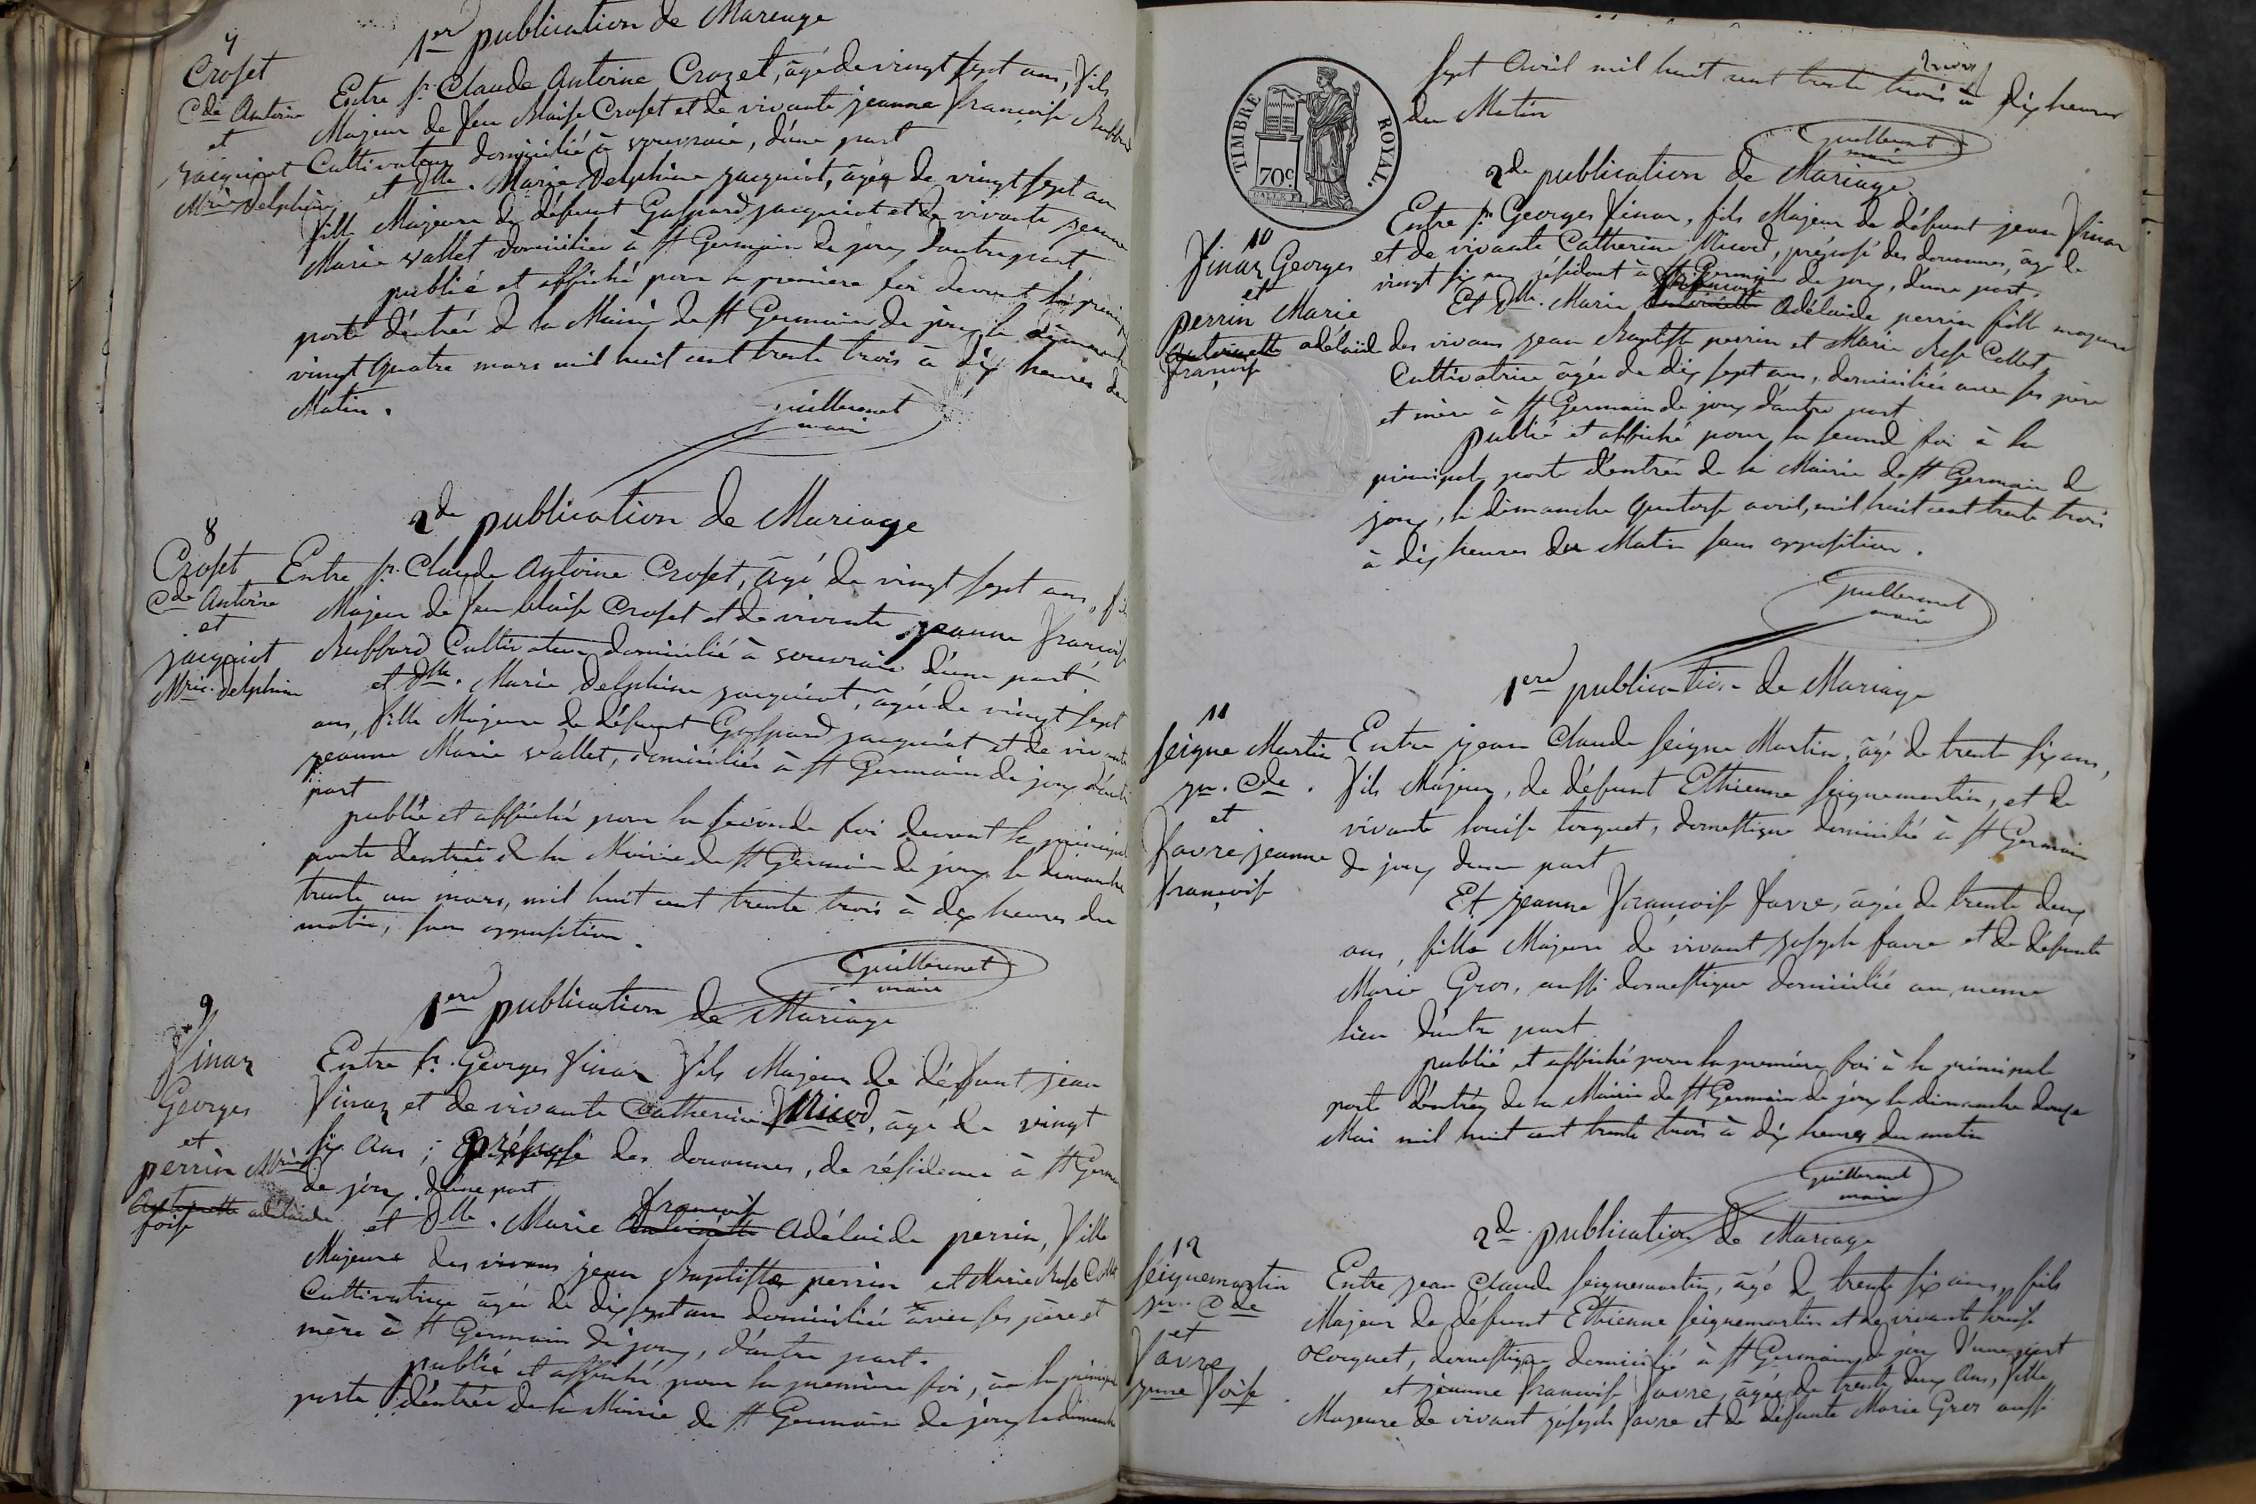 1er publication de Mariage
7
Croset
Cde Antoine
et
jacquiot
Mrie Delphine
Entre sr. Claude Antoine Crozet, âgé de vingt sept ans, fils
Majeur de feu Blaise Croset et de vivante jeanne françoise Buffard
Cultivateur domicilié à , d'une part
et Dlle. Marie Delphine jacquiot, âgée de vingt sept an
fille Majeure de défunt Gaspard jacquiot et de vivante jeanne
Marie vallet domiciliée à St Germain de joux d'autre part
publié et affiché pour la premiere foi devant la principale
porte d'entrée de la Mairie de St Germain de joux le dimanche
vingt quatre mars mil huit cent trente trois à dix heures du
Matin.
Guillermet
maire
2de publication de Mariage
8
Croset
Cde Antoine
et
jacquiot
Mrie. Delphine
Entre sr. Claude Antoine Croset, âgé de vingt sept ans, fils
Majeur de feu blaise Croset et de vivante jeanne françoise
Buffard Cultivateur domicilié à d'une part
et Dlle. Marie Delphine jacquiot, âgée de vingt sept
ans, fille Majeure de défunt Gaspard jacquiot et de vivante
jeanne Marie vallet, domiciliée à St Germain de joux d'autre
part
publié et affiché pour la seconde foi devant la principale
porte d'entrée de la Mairie de St Germain de joux le dimanche
trente un mars, mil huit cent trente trois à dix heures du
matin, sans opposition.
Guillermet
maire
1ere publication de Mariage
9
Vinaz
Georges
et
perrin Mrie
Antoinette adélaide
foise
Entre sr. Georges Vinaz fils Majeur de défunt jean
Vinaz et de vivante Catherine Nicod, âgé de vingt
six ans ; préposé des douannes, de résidence à St Germain
de joux, d'une part
françoise
et Dlle. Marie Antoinette Adélaide perrin, fille
Majeure des vivans jean Baptiste perrin et Marie Rose Collet
Cultivatrice âgée de dix sept ans domiciliée avec ses père et
mère à St Germain de joux, d'autre part.
publié et affiché pour la première foi, à la principale
porte d'entrée de la Mairie de St Germain de joux le dimanche
TIMBRE ROYAL.
70c.
sept Avril mil huit cent trente trois à dix heures
du Matin
Guillermet
maire
2de publication de Mariage
10
Vinaz Georges
et
perrin Marie
Antoinette adélaïde
françoise
Entre sr Georges Vinaz, fils Majeur de défunt jean Vinaz
et de vivante Catherine Nicod, préposé des douannes, âgé de
vingt six ans résidant à St Germain de joux, d'une part.
françoise
Et Dlle. Marie Antoinette Adélaide perrin fille majeure
des vivans jean Baptiste perrin et Marie Rose Collet,
Cultivatrice âgée de dix sept ans, domiciliée avec ses père
et mère à St Germain de joux d'autre part
Publié et affiché pour la second foi à la
principale porte d'entrée de la Mairie de St Germain de
joux, le dimanche quatorse avril, mil huit cent trente trois
à dix heures du Matin sans opposition.
Guillermet
maire
1ere publication de Mariage
11
seigne Martin
jn. Cde.
et
favre jeanne
françoise
Entre jean Claude seigne Martin, âgé de trente six ans,
fils Majeur, de défunt Ethienne seignemartin, et de
vivante louise , domestique domicilié à St Germain
de joux d'une part
Et jeanne françoise favre, âgée de trente deux
ans, fille Majeure de vivant joseph favre et de défunte
Marie Gros, aussi domestique domicilié au meme
lieu d'autre part
publié et affiché pour la première foi à la principale
porte d'entrée de la Mairie de St Germain de joux le dimanche douze
Mai mil huit cent trente trois à dix heures du matin
Guillermet
maire
2de publication de Mariage
12
seignemartin
jn. Cde
et
favre
jnne foise
Entre jean Claude seignemartin, âgé de trente six ans, fils
Majeur de défunt Ethienne seignemartin et de vivante louise
, domestique domicilié à St Germain de joux d'une part
et jeanne françoise favre, âgée de trente deux ans, fille
Majeure de vivant joseph favre et de défunte Marie Gros aussi